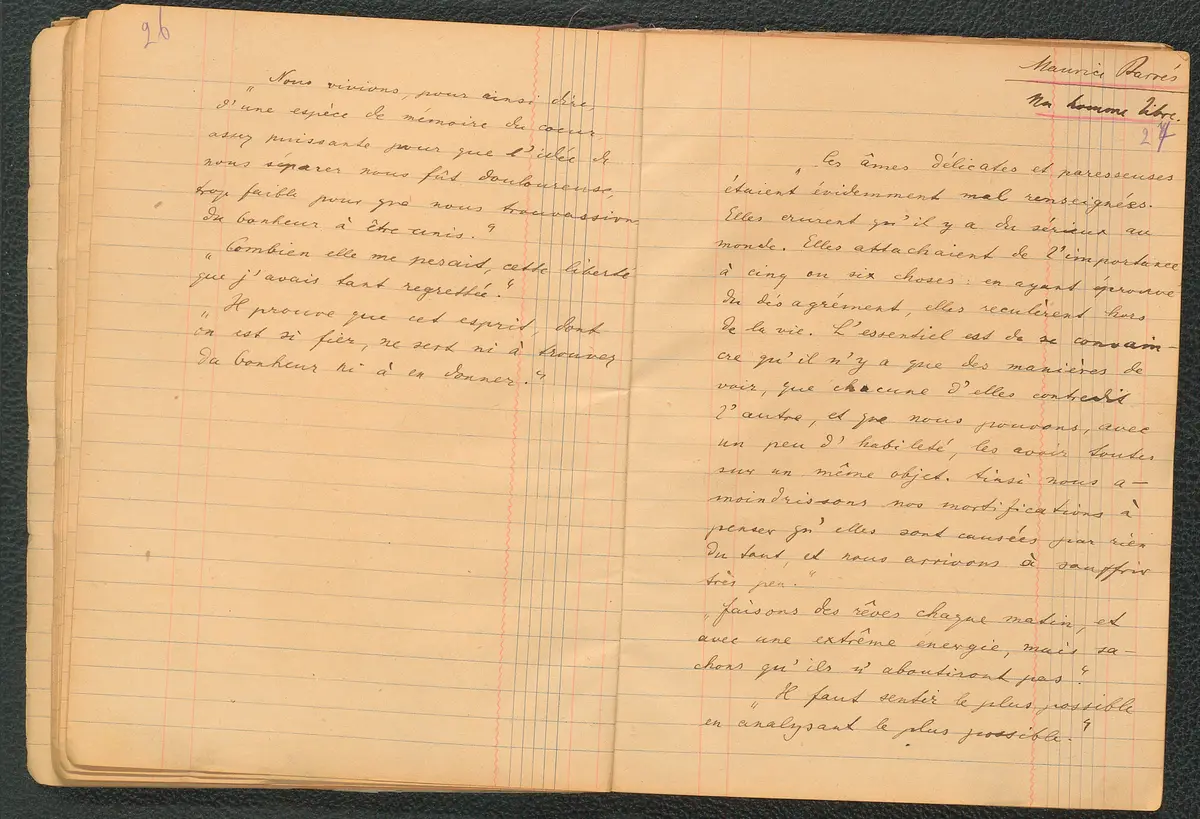 26
„ Nous vivions, pour ainsi dire,
d'une espèce de mémoire du coeur
assez puissante pour que l'idée de
nous séparer nous fût douloureuse,
trop faible pour que nous trouvassions
du bonheur à être unis."
„ Combien elle me pesait, cette liberté
que j'avais tant regrettée."
„ Il prouve que cet esprit, dont
on est si fier, ne sert ni à trouver
du bonheur ni à en donner."
Maurice Barrès
homme libre.
27
„ Ces âmes délicates et paresseuses
étaient évidemment mal renseignées.
Elles crurent qu'il y a du sérieux au
monde. Elles attachaient de l'importance
à cinq ou six choses: en ayant éprouvé
du désagrément, elles reculèrent hors
de la vie. L'essentiel est de se convain-
cre qu'il n'y a que des manières de
voir, que chacune d'elles contredit
l'autre, et que nous pouvons, avec
un peu d'habileté, les avoir toutes
sur un même objet. Ainsi nous a-
moindrissons nos mortifications à
penser qu'elles sont causées par rien
du tout, et nous arrivons à souffrir
très peu."
„ faisons des rêves chaque matin, et
avec une extrême énergie, mais sa-
chons qu'ils n'aboutiront pas."
„ Il faut sentir le plus possible
en analysant le plus possible."